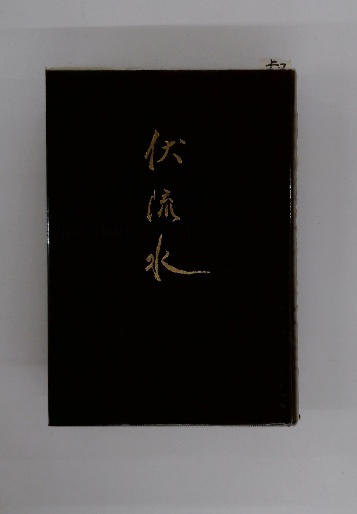 伏流水